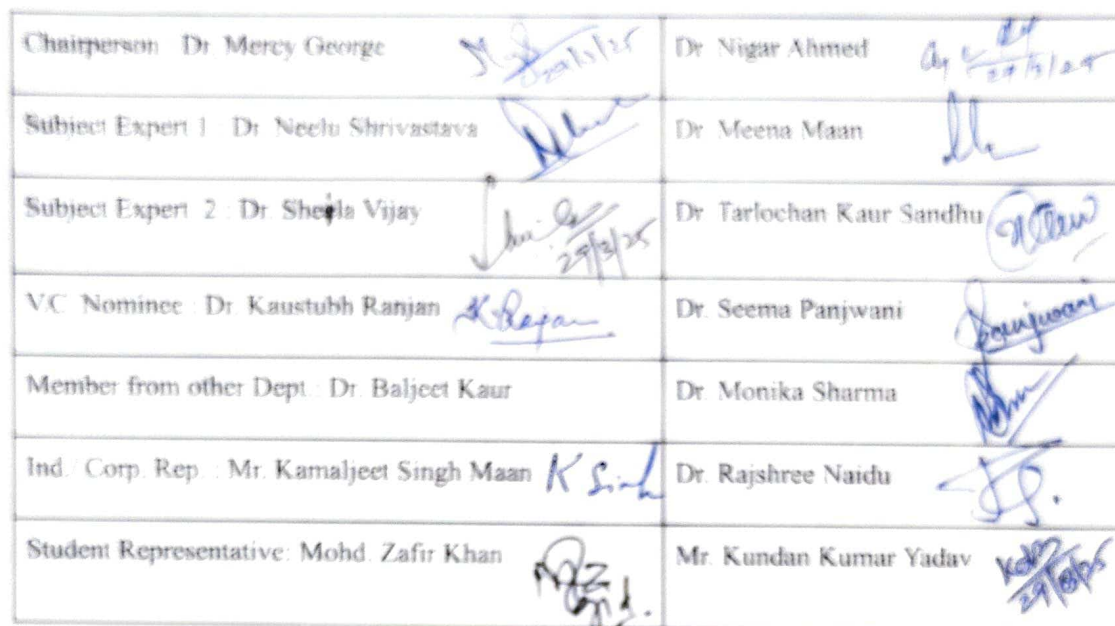 Chairperson Dr Mercy George 29/3/25
Dr Nigar Ahmed 29/3/25
Subject Expert 1 : Dr Neelu Shrivastava
Dr Meena Maan
Subject Expert 2 : Dr. Sheela Vijay 29/3/25
Dr Tarlochan Kaur Sandhu
V.C. Nominee : Dr. Kaustubh Ranjan
Dr. Seema Panjwani Panjwani
Member from other Dept. : Dr. Baljeet Kaur
Dr. Monika Sharma
Ind./ Corp. Rep. : Mr. Kamaljeet Singh Maan K Singh
Dr. Rajshree Naidu
Student Representative: Mohd. Zafir Khan
Mr. Kundan Kumar Yadav 29/3/25